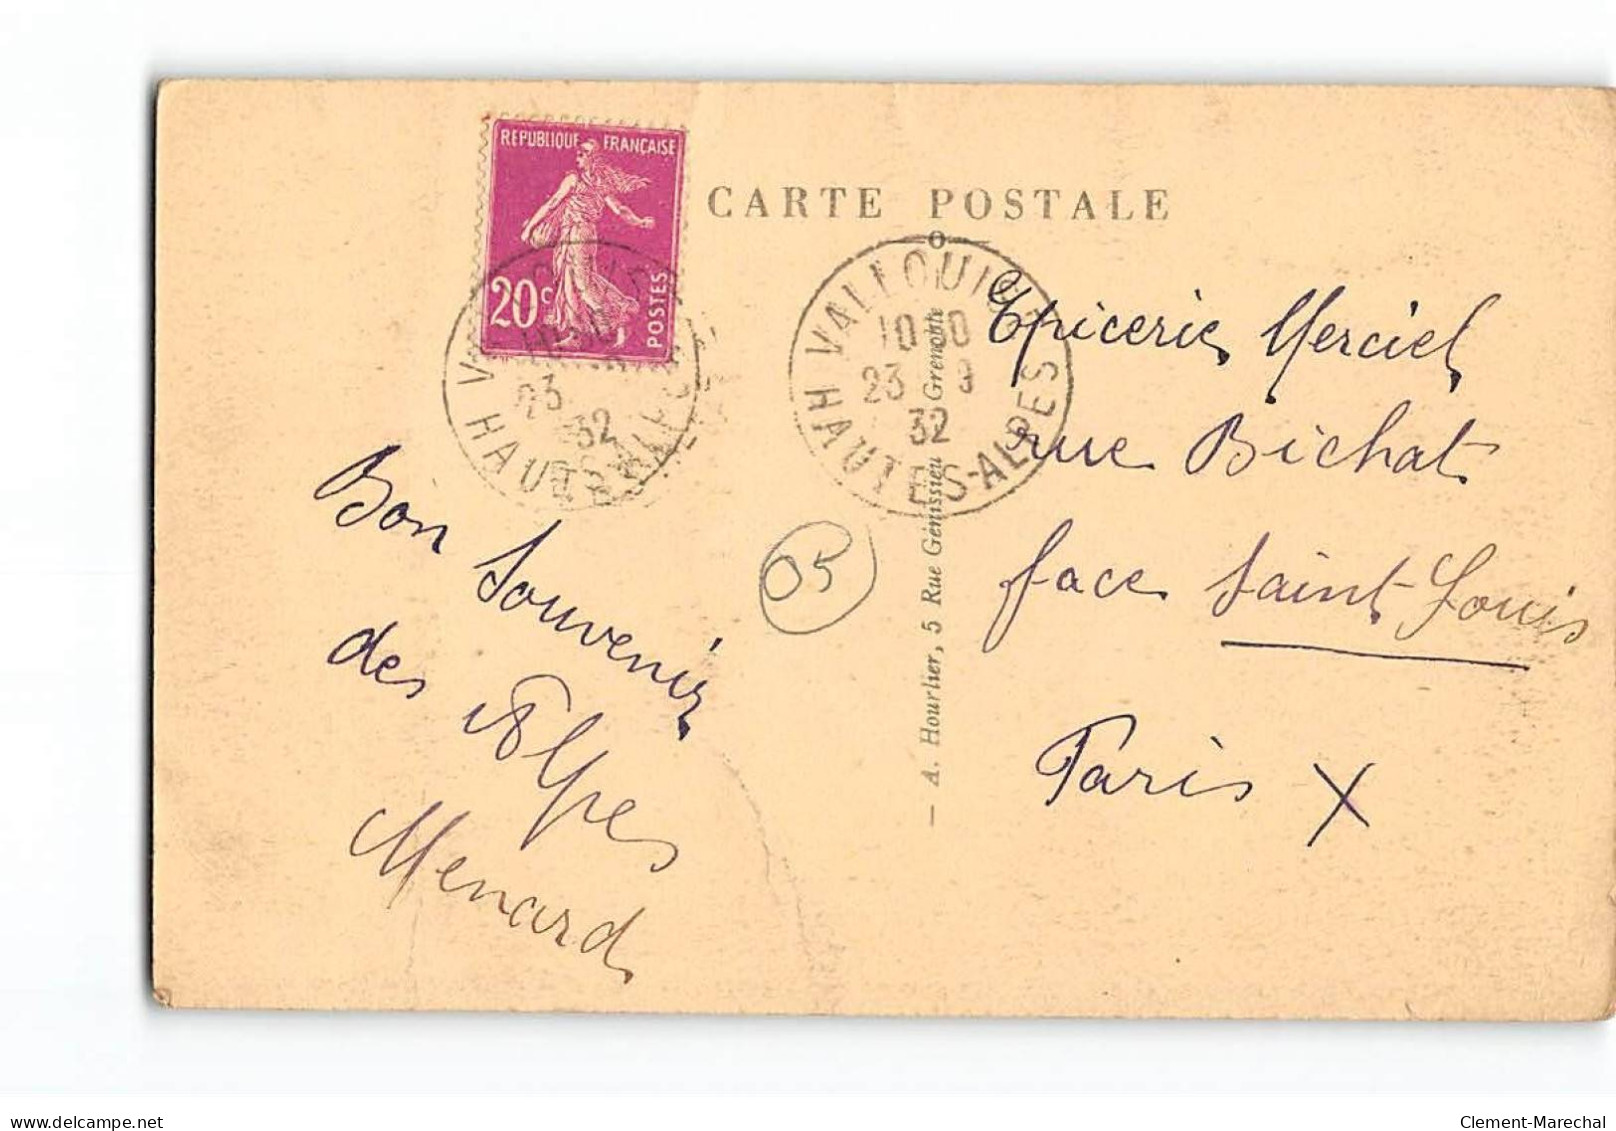 REPUBLIQUE FRANÇAISE
20c
POSTES
CARTE POSTALE
VALLOUISE
10 30
23 9
32
HAUTES-ALPES
23
32
Bon Souvenir
des Alpes
Menard
05
— A. Hourlier, 5 Rue Génissieu Grenoble
Epicerie Merciel
rue Bichat
face Saint-Louis
Paris X
delcampe.net
Clement-Marechal